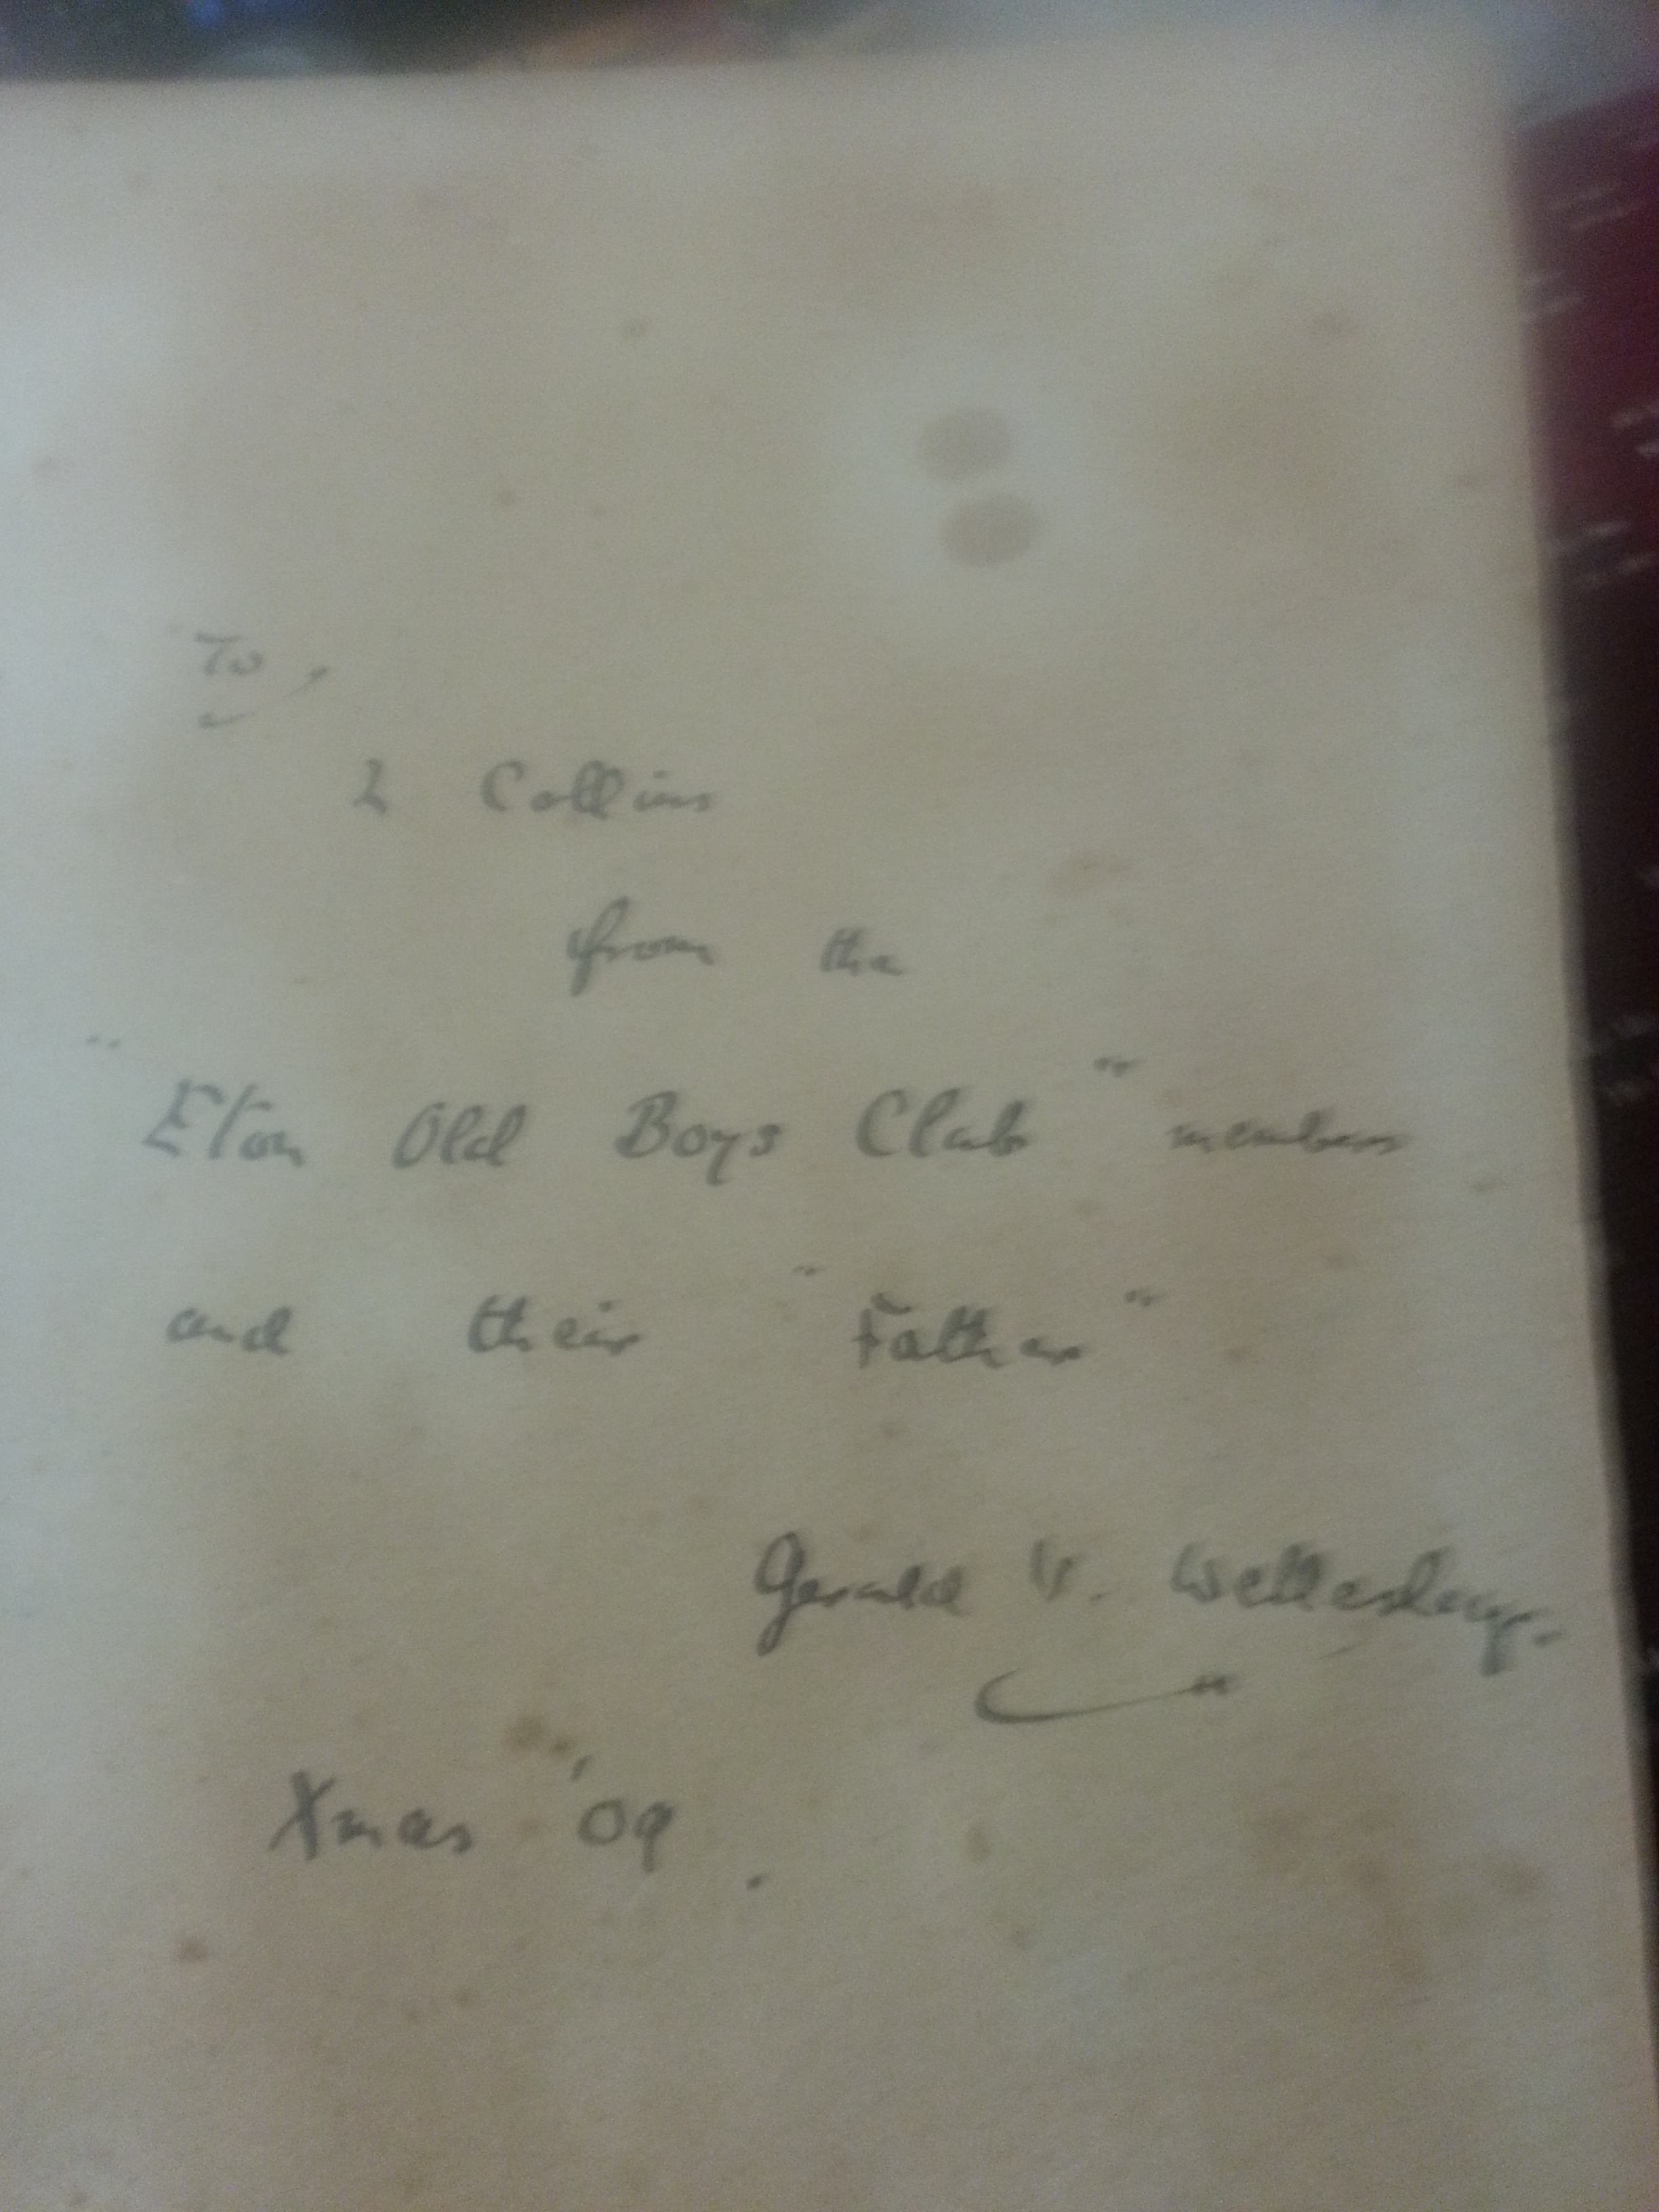 To,
L Collins
from the
"Eton Old Boys Club" members
and their "Father"
Gerald V. Wellesley.
Xmas '09.